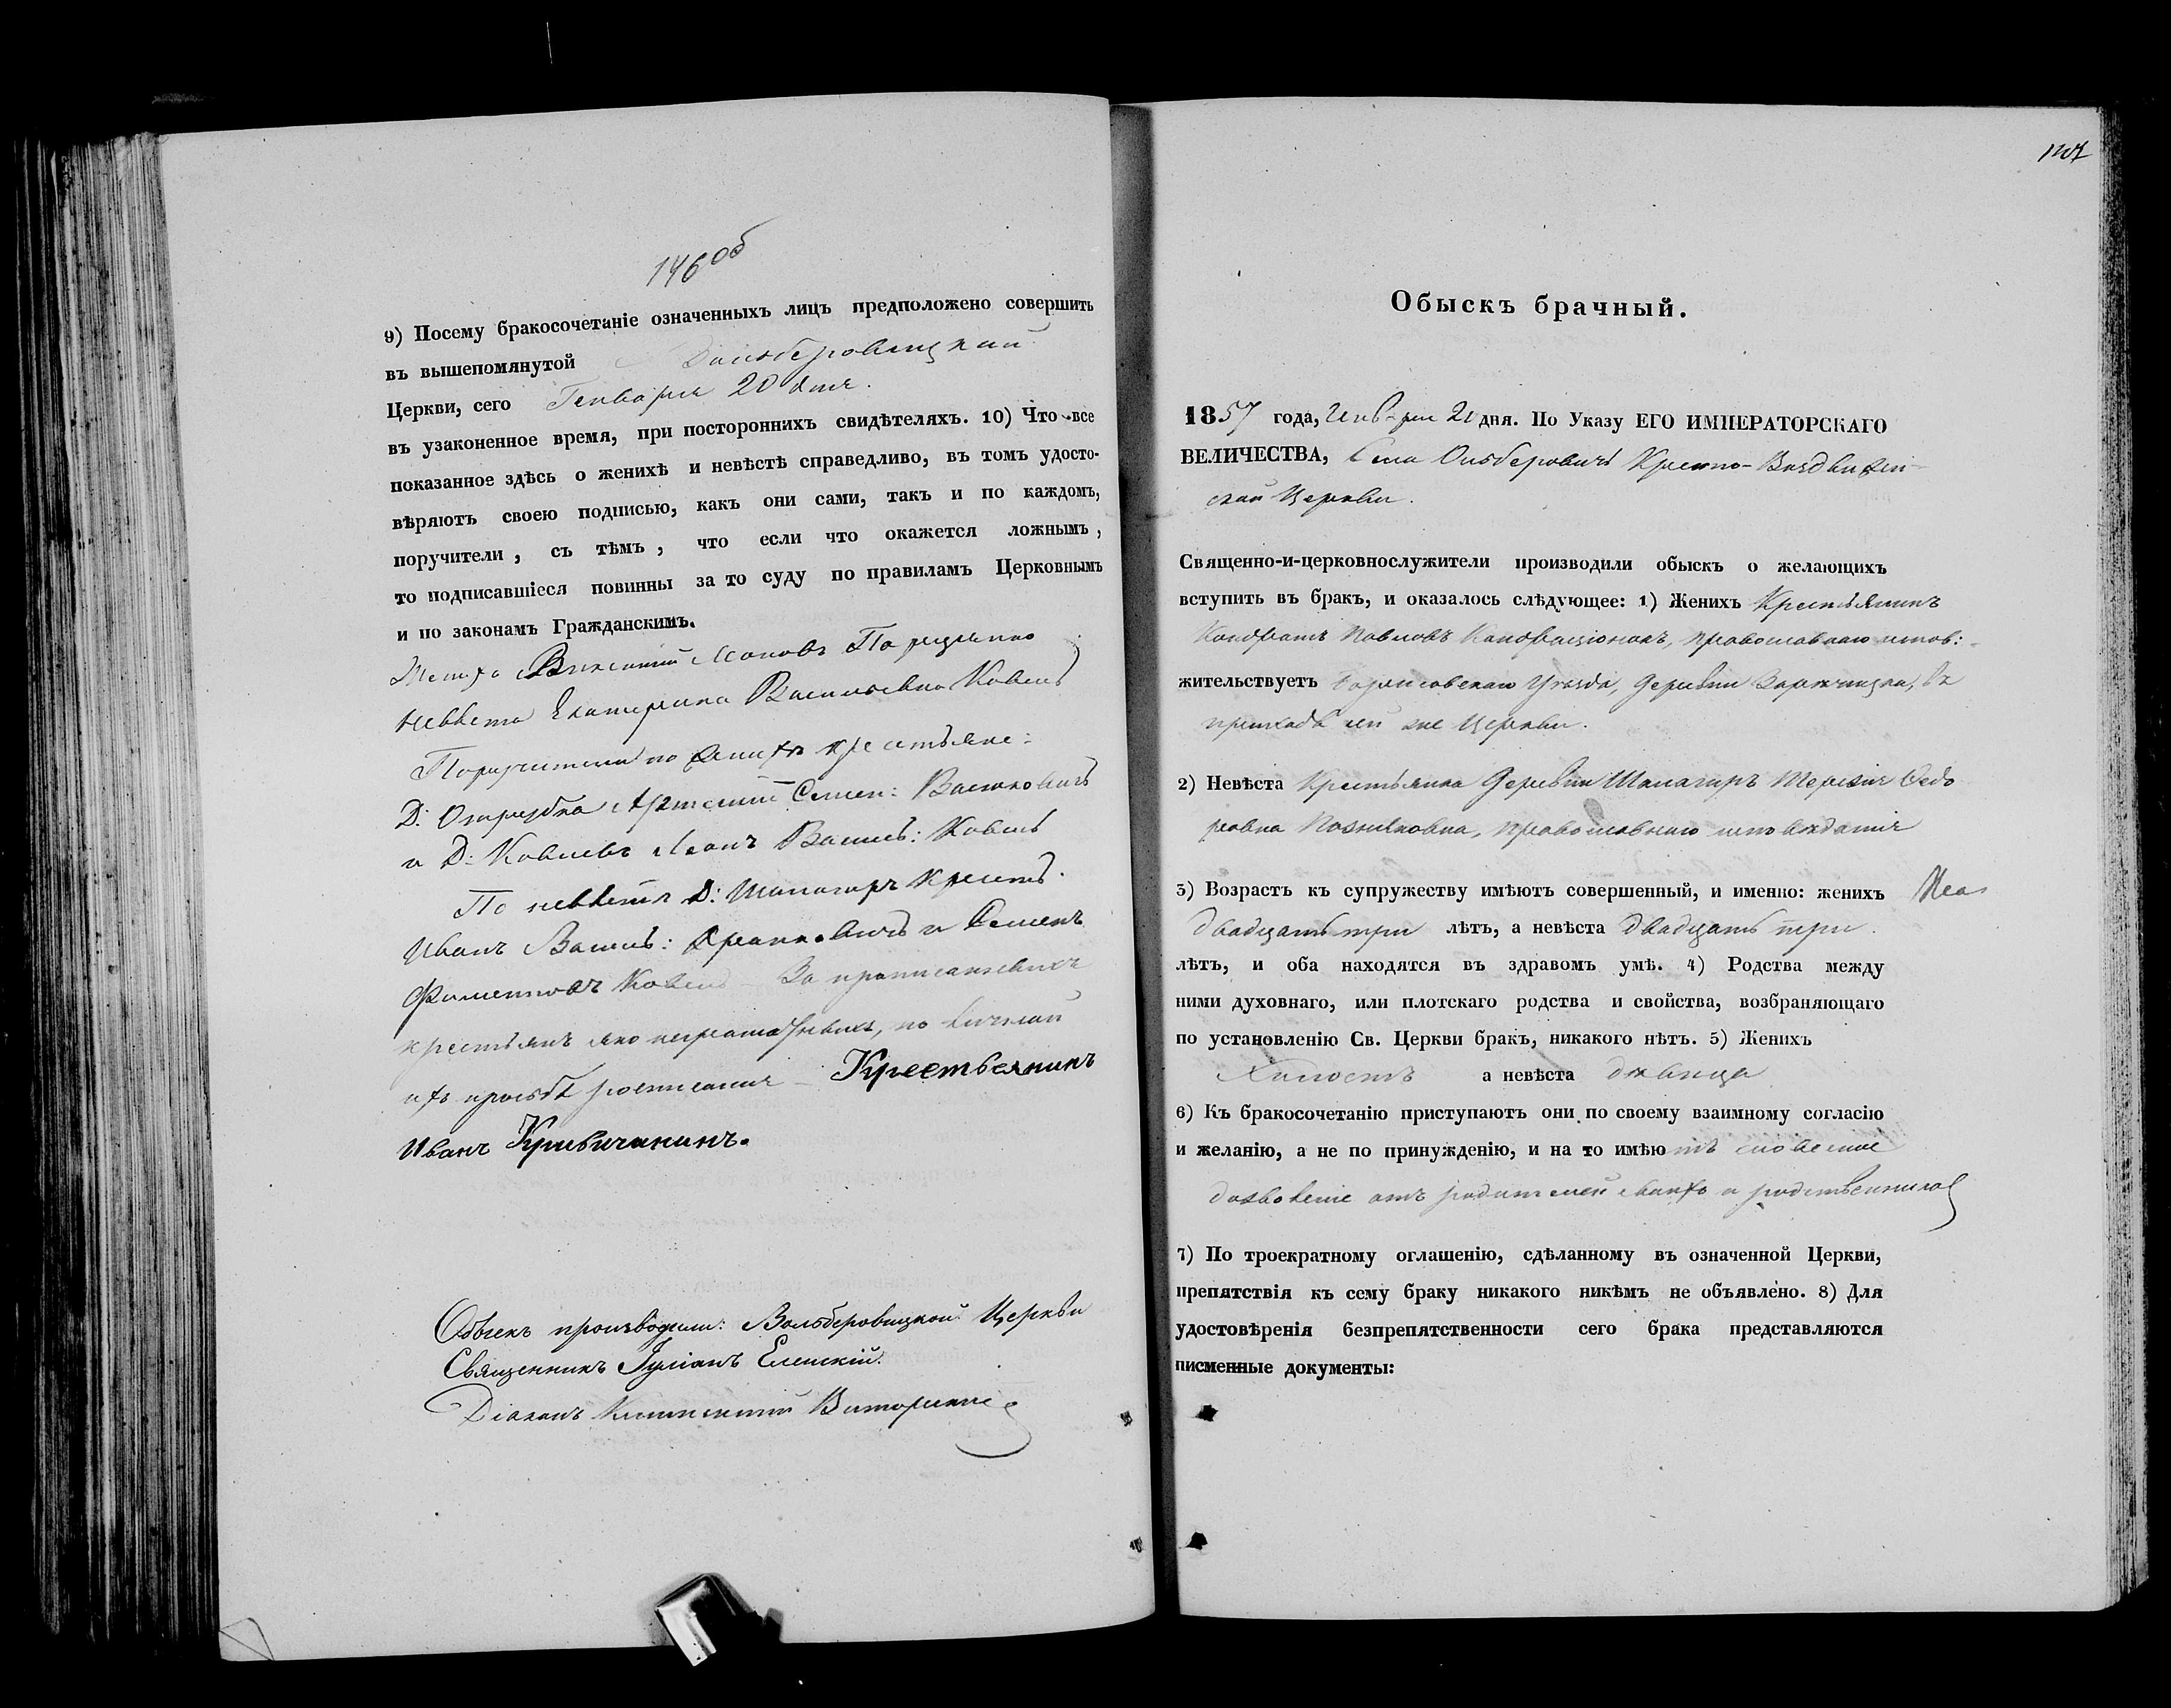 146 об
9) Посему бракосочетаніе означенныхъ лицъ предположено совершить
въ вышепомянутой
Церкви, сего Генваря 20 дня.
въ узаконенное время, при постороннихъ свидѣтеляхъ. 10) Что все
показанное здѣсь о женихѣ и невѣстѣ справедливо, въ томъ удосто-
вѣряютъ своею подписью, какъ они сами, такъ и по каждомъ,
поручители, съ тѣмъ, что если что окажется ложнымъ,
то подписавшіеся повинны за то суду по правиламъ Церковнымъ
и по законамъ Гражданскимъ.
Жених
невѣста Екатерина Васильевна Ковель
Поручители по женихѣ крестьяне:
Д: Отрубка Артемій Семен: Васюковичъ
и Д: Ковлевъ Василь: Ковель
По невѣстѣ Д: Шалагиръ Крест.
Иванъ Василь: и Семенъ
Ковель За прописанныхъ
крестьянъ яко неграмотныхъ, по личной
ихъ просьбѣ росписался – Крестьянинъ
Иванъ Кривичанинъ.
Обыскъ производили: Вольберовицкой Церкви
Священникъ Іуліанъ Еленскій.
Діаконъ
147
Обыскъ брачный.
1857 года, Генваря 21 дня. По Указу ЕГО ИМПЕРАТОРСКАГО
ВЕЛИЧЕСТВА, Села Ольберовичъ Кресто-Воздвижен-
ской Церкви.
Священно-и-церковнослужители производили обыскъ о желающихъ
вступить въ бракъ, и оказалось слѣдующее: 1) Женихъ Крестьянинъ
Кондратъ Павловъ православнаго испов:
жительствуетъ Борисовскаго Уѣзда, деревни въ
приходѣ сей же Церкви.
2) Невѣста Крестьянка деревни Шалагиръ Терезія Ѳедо
ровна Позняковна, православнаго исповѣданія
3) Возрастъ къ супружеству имѣютъ совершенный, и именно: женихъ
двадцать три лѣтъ, а невѣста двадцать три.
лѣтъ, и оба находятся въ здравомъ умѣ. 4) Родства между
ними духовнаго, или плотскаго родства и свойства, возбраняющаго
по установленію Св. Церкви бракъ, никакого нѣтъ. 5) Женихъ
Холостъ а невѣста дѣвица
6) Къ бракосочетанію приступаютъ они по своему взаимному согласію
и желанію, а не по принужденію, и на то имѣютъ словесное
дозволеніе отъ родителей своихъ и родственниковъ
7) По троекратному оглашенію, сдѣланному въ означенной Церкви,
препятствія къ сему браку никакого никѣмъ не объявлено. 8) Для
удостовѣренія безпрепятственности сего брака представляются
писменные документы: